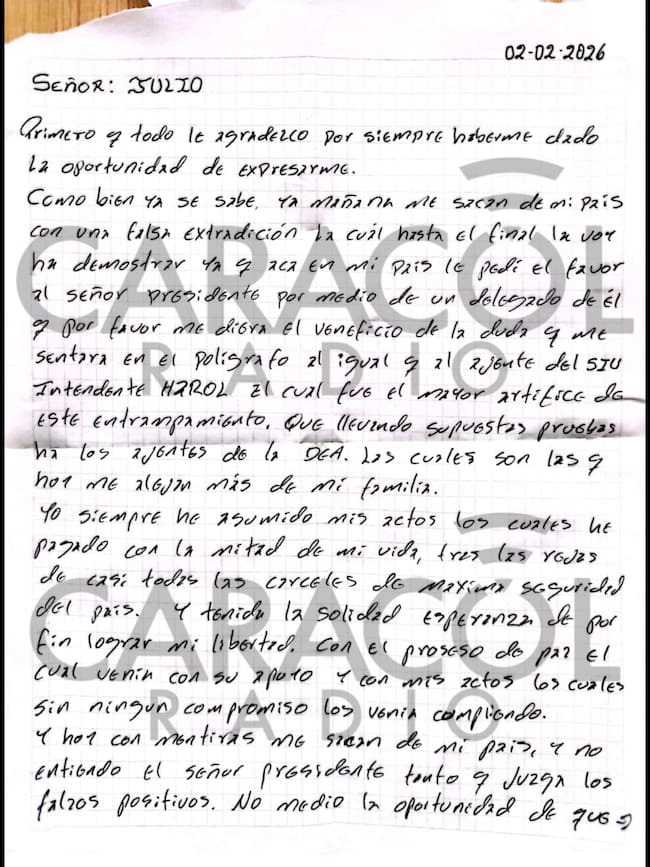 02-02-2026
SEÑOR: JULIO
Primero q todo le agradezco por siempre haberme dado
la oportunidad de expresarme.
Como bien ya se sabe, ya mañana me sacan de mi país
con una falsa extradición la cuál hasta el final la voy
ha demostrar ya q aca en mi país le pedí el favor
al señor presidente por medio de un delegado de él
q por favor me diera el veneficio de la duda q me
sentara en el polígrafo al igual q al ajente del SIU
Intendente HAROL El cual fue el mayor artifice de
este entrampamiento. Que llevando supuestas pruebas
ha los ajentes de la DEA. Las cuales son las q
hoy me alejan más de mi familia.
Yo siempre he asumido mis actos los cuales he
pagado con la mitad de mi vida, tres las rejas
de casi todas las carceles de maxima seguridad
del país. Y tenida la solidad esperanza de por
fin lograr mi libertad. Con el proseso de paz el
cual venia con su apoyo y con mis actos los cuales
sin ningun compromiso los venia compliendo.
Y hoy con mentiras me sacan de mi país, y no
entiendo el señor presidente tanto q Juzga los
falzos positivos. No medio la oportunidad de que =>
CARACOL
RADIO
CARACOL
RADIO